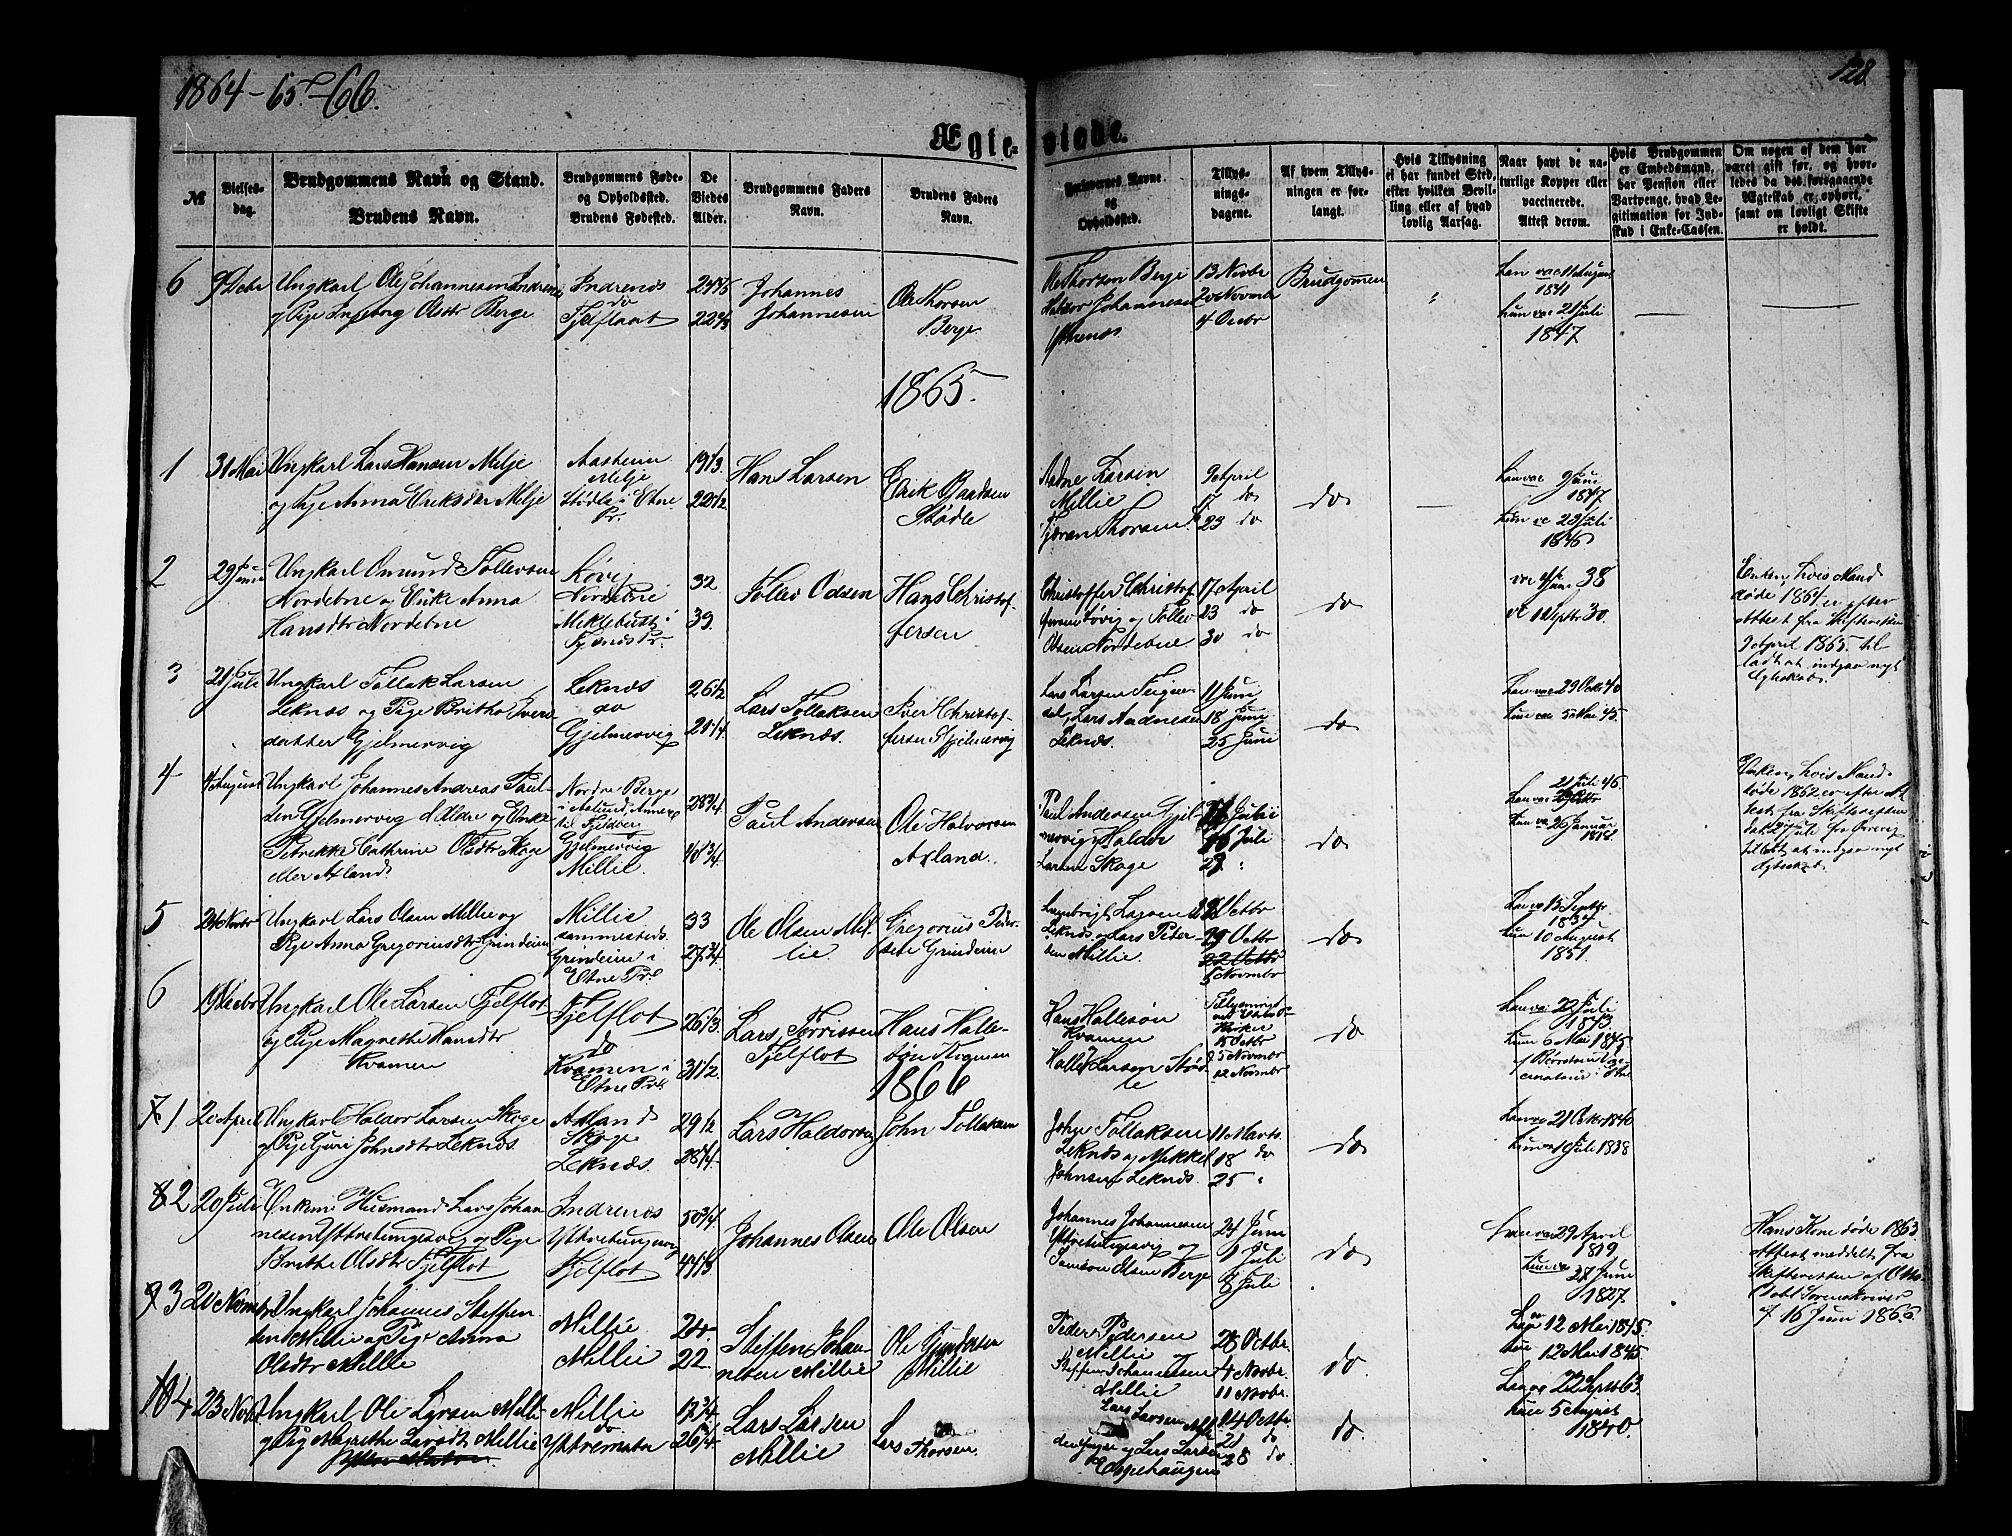 1864-65-66.
128
Ægte-
viede.
№
Vielses-
dag.
Brudgommens Navn og Stand.
Brudens Navn.
Brudgommens Føde-
og Opholdsted.
Brudens Fødested.
De
Viedes
Alder.
Brudgommens Faders
Navn.
Brudens Faders
Navn.
Forlovernes Navne
og
Opholdsted.
Tillys-
nings-
dagene.
Af hvem Tillys-
ningen er for-
langt.
Hvis Tillysning
ei har fundet Sted,
efter hvilken Bevil-
ling eller af hvad
lovlig Aarsag.
Naar havt de na-
turlige Kopper eller
vaccinerede.
Attest derom.
Hvis Brudgommen
er Embedsmand,
har Pension eller
Vartpenge, hvad Le-
gitimation for Ind-
skud i Enke-Cassen.
Om nogen af dem har
været gift før, og hvor-
ledes da det foregaaende
Ægteskab er ophørt,
samt om lovligt Skifte
er holdt.
6
9 Debr
Ungkarl Ole Johannesen Indrenes
og Pige Ingeborg Olsdtr Berge
Indrenes
do
Fjelflaat
Johannes
Johannesen
Ole Thorsen
Berge
Ole Thorsen Berge
Johannesen
13 Novbr
20 Novmbr
4 Decbr
Brudgomen
1841
hun vac 21 Juli
1847
1865.
1
31 Mai
Ungkarl Lars Hansen Melje
og Pige Anna Eriksdtr Melje
Aasheim
Melje
Stødle i Etne
Pr.
19 1/3
22 1/2
Hans Larsen
Erik Baadsen
Stødle
Aadne Larsen
Millie
Thorsen
9 April
17 do
23 do
do
Han vac 9 Juni
1847
hun vc 23 Juli
1846
2
29 Juni
Ungkarl Omund Tollevsen
Nordebøe og Enke Anna
Hansdtr Nordebøe
Løvig
Nordebøe
Meklebust i
Fjelds Pr.
32
39
Tollev Odsen
Hans Christof-
fersen
Christoffer Christof-
fersen Løvig og Tollev
Olsen Nordebøe
17 April
23 do
30 do
do
38
vc 12 Septbr 30
Enken, hvis Mand
døde 1864 er efter
Attest fra Skifteretten
9 April 1865 til
ladt at indgaa nyt
Egteskab.
3
21 Juli
Ungkarl Tollak Larsen
Leknæs og Pige Britha Ivers
datter Gjelmervig
Leknæs
do
Gjelmervig
26 1/2
21 1/4
Lars Tollaksen
Leknæs.
Iver Christof-
fersen Gjelmervig
Lars Larsen
Lars Aadnesen
Leknæs.
11 Juni
18 Juni
25 Juni
do
Han vac 29 Octbr 40
hun vac 5 Mai 45.
4
4 August
Ungkarl Johannes Andreas Paul-
sen Gjelmervig d. Eldre og Enke
Petrikke Cathrine Olsdtr Skoge
eller Axland
Nordre Berge
i Aalund Annex
til Fjeldbr
Gjelmervig
Millie
28 3/4
40 3/4
Paul Andersen
Ole Halvorsen
Axland.
Paul Andersen Gjel-
mervig og Haldor
Larsen Skoge
Julii
16 Juli
23 "
do
21 Juli 46
hun vac 26 Januar
1818
Enken, hvis Mand
døde 1862 er efter At
test fra Skifteretten
dat 27 Juli
tilladt at indgaa nyt
Egteskab.
5
24 Novbr
Ungkarl Lars Olsen Millie og
Pige Anna Gregoriusdtr Grindeim
Millie
sammesteds
Grindeim i
Etne Pr.
33
27 3/4
Ole Olsen Mil-
lie
Gregorius Peder-
sen Grindeim
Leknæs og Lars Peder-
sen Millie.
Octbr
29 Octbr
22 Octbr
5 Novembr
do
Han va 13 Septbr
1834
hun 10 August
1851
6
Ungkarl Ole Larsen Fjelflot
og Pige Magrethe Hansdtr
Kvamen
Fjelflot
do
Kvamen i
Etne Pr.
26 1/3
31 1/2
Lars Torrissen
Fjelflot
Hans Halle-
søn Kvamen
Hans Hallesøn
Kvamen
Halle Larsen Stød-
le
15 Octbr
5 Novmbr
12 Novmbr
do
Han va 22 Juli
1843
hun 6 Mai 1845
1866
7 1
2 April
Ungkarl Haldor Larsen Skoge
og Pige Guri Johnsdtr Leknæs.
Axland
Skoge
Leknæs.
29 1/2
28 1/4
Lars Haldorsen
John Tollaksen
John Tollaksen
Leknæs og Mikkel
Johnsen Leknæs.
11 Marts
18 do
25 "
do
Han va 21 Octbr 1840
hun va 1 Juli 1838
8 2
20 Juli
Enkem. Husmand Lars Johan
nesen Yttretungesvig og Pige
Brithe Olsdtr Fjelflot
Indrenes
Yttretungesvig
Fjelflot
50 3/4
44 1/3
Johannes Olsen
Ole Olsen
Johannes Johannesen
Yttretungesvig og
Samson Olsen Berge
24 Juni
1 Juli
8 Juli
do
Han va 29 April
1819
hun va
27 Juni
1827.
Hans Kone døde 1863
Attest meddelt fra
Skifteretten af Con-
stit Sorenskriver
16 Juni 1866
9 3
20 Novmbr
Ungkarl Johannes Steffen
sen Millie og Pige Anna
Olsdtr Millie
Millie
Millie
24.
22.
Steffen Johan-
nesen Millie
Ole Gundersen
Millie
Peder Pedersen
Millie
Steffen Johannesen
Millie
28 Octbr.
4 Novbr.
11 Novbr.
do.
Han va 12 Mai 1845.
hun 12 Mai 1845
10 4
23 Novbr
Ungkarl Ole Larsen Milli
og Pig Magrethe Larsdt Millie
Millie
do
Yttremoen
17 3/4
26 1/4
Lars Larsen
Millie
Lars Thorsen
Lars Larsen Mil-
Lars Larsen
Espehaugen
14 Octbr
21 do
28 do
do
Han va 22 Sept 63
hun 5 August
1840.